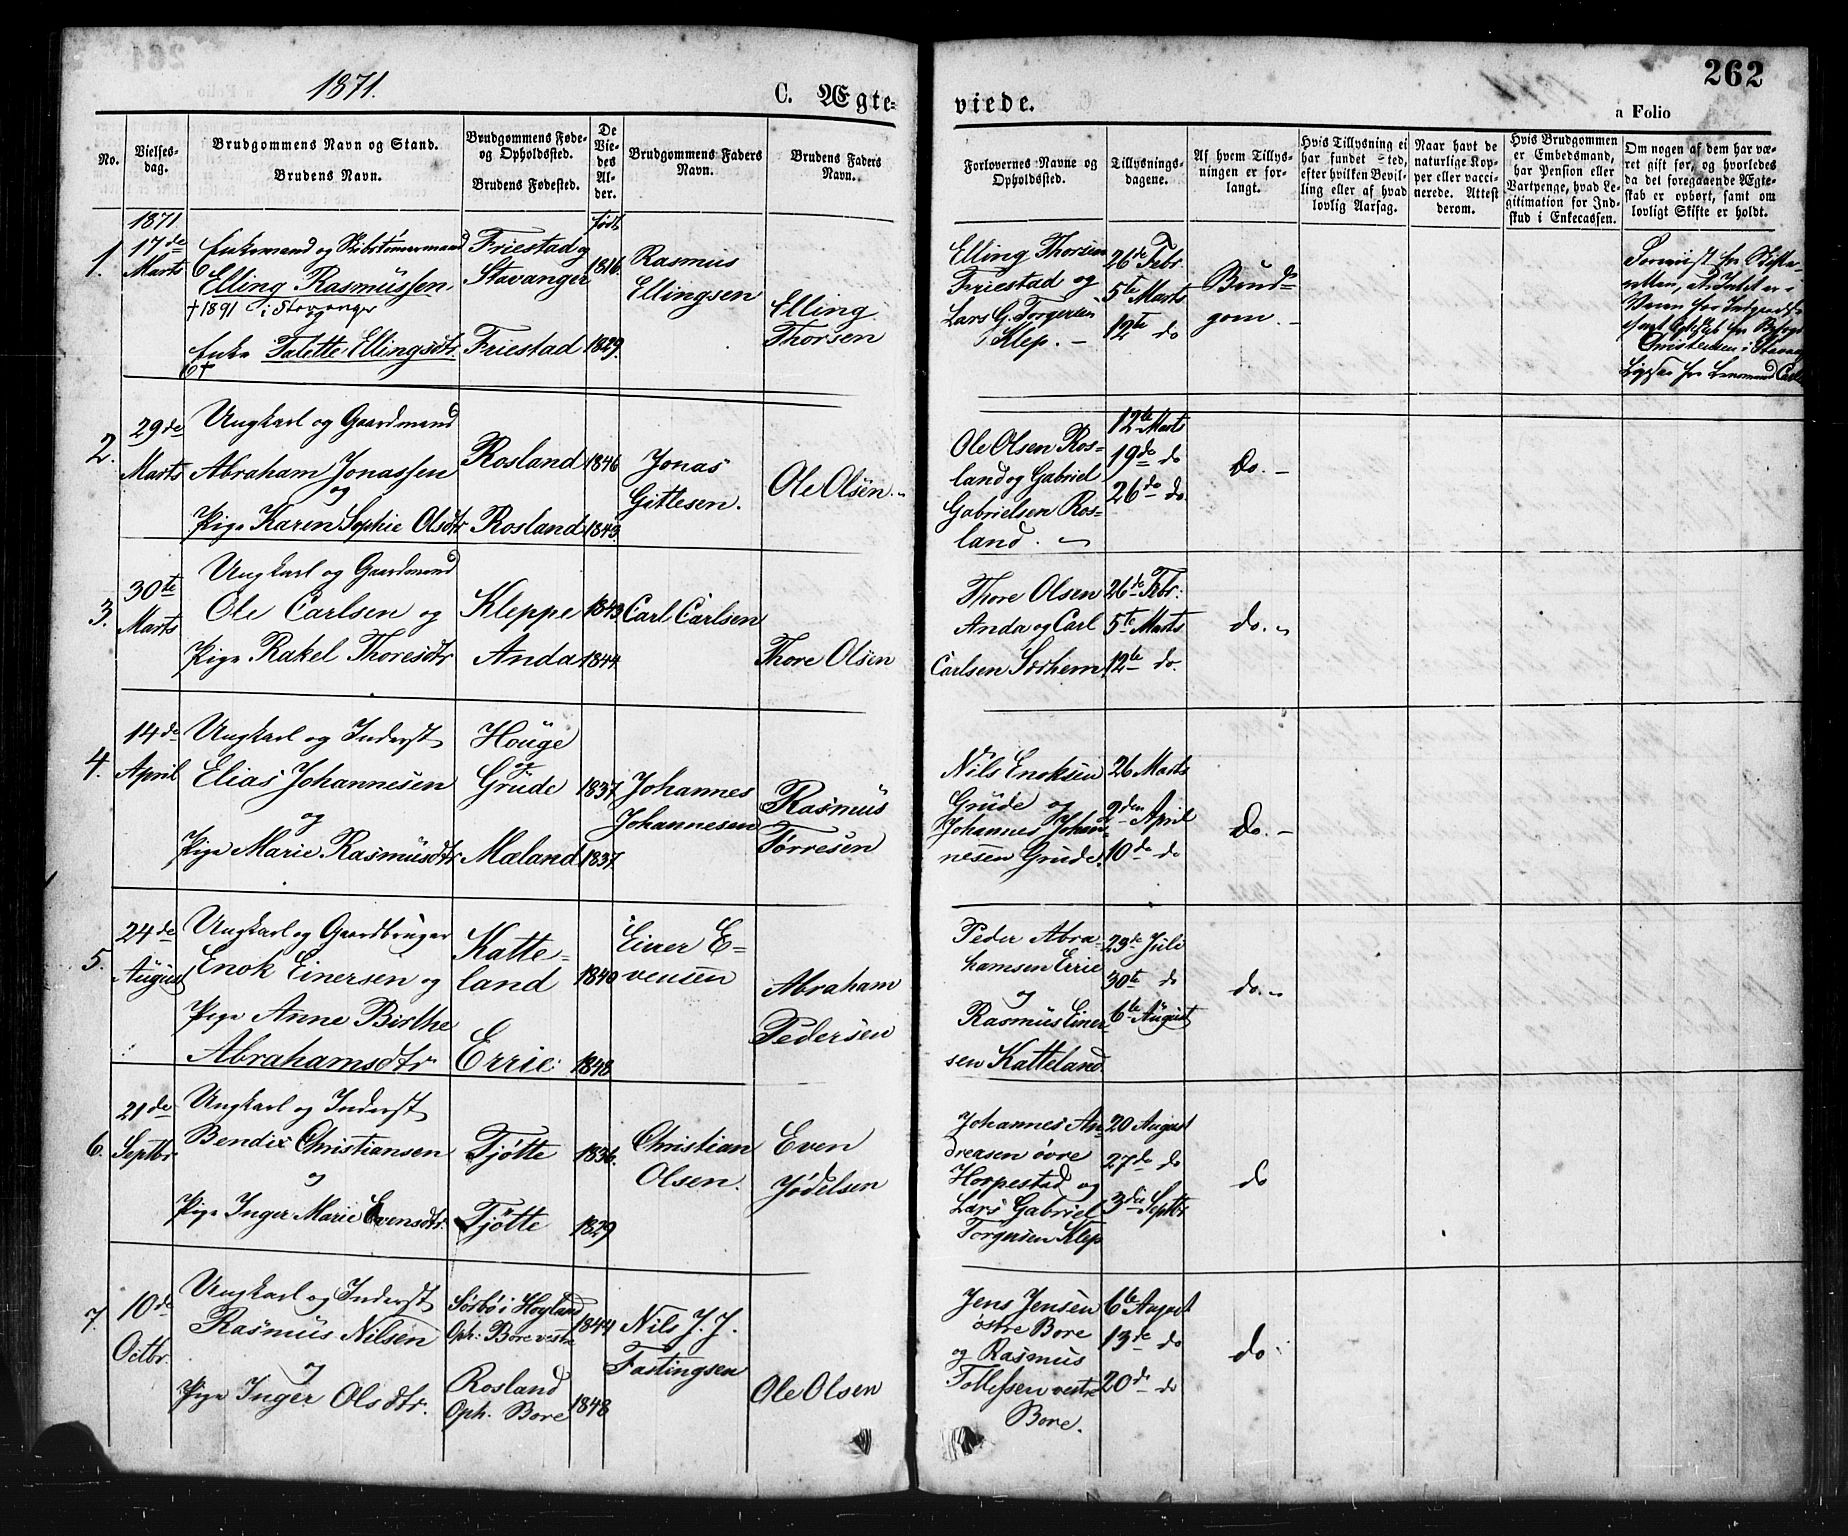 1871.
C. Ægte=
viede.
262
a Folio
No.
Vielses-
dag.
Brudgommens Navn og Stand.
Brudens Navn.
Brudgommens Føde-
og Opholdssted.
Brudens Fødested.
De
Vie-
des
Al-
der.
Brudgommens Faders
Navn.
Brudens Faders
Navn.
Forlovernes Navne og
Opholdssted.
Tillysnings-
dagene.
Af hvem Tillys-
ningen er for-
langt.
Hvis Tillysning ei
har fundet Sted,
efter hvilken Bevil-
ling eller af hvad
lovlig Aarsag.
Naar havt de
naturlige Kop-
per eller vacci-
nerede. Attest
derom.
Hvis Brudgommen
er Embedsmand,
har Pension eller
Vartpenge, hvad Le-
gitimation for Ind-
skud i Enkecassen.
Om nogen af dem har væ-
ret gift før, og hvorledes
da det foregaaende Ægte-
skab er ophørt, samt om
lovligt Skifte er holdt.
1.
1871
17de
Marts
Enkemand og Skibstømermand
Elling Rasmussen,
†1891 i Stavanger
og
Enke Talette Ellingsdtr
Friestad og
Stavanger
Friestad
født
1816.
1829.
Rasmus
Ellingsen
Elling
Thorsen
Elling Thorsen
Friestad og
Lars G. Torgersen
Klep. –
26de Febr.
5te Marts
12te do
Brud=
gom. –
2.
29de
Marts
Ungkarl og Gaardmand
Abraham Jonassen
og
Pige Karen Sophie Olsdtr
Rosland
Rosland
1846
1843.
Jonas
Gitlesen.
Ole Olsen.
Ole Olsen Ros-
land og Gabriel
Gabrielsen Ros=
land.
12te Marts
19de do
26de do.
do. –
3.
30te
Marts
Ungkarl og Gaardmand
Ole Carlsen og
Pige Rakel Thoresdtr
Kleppe
Anda
1843
1844
Carl Carlsen
Thore Olsen
Thore Olsen
Anda og Carl
Carlsen Sørhem
26de Febr:
5te Marts
12te do.
do.
4.
14de
April
Ungkarl og Inderst
Elias Johannesen
og
Pige Marie Rasmusdtr
Houge
og
Grude
Mæland
1837
1837.
Johannes
Johannesen
Rasmus
Torresen
Nils Enoksen
Grude og
Johannes Johan-
nesen Grude.
26 Marts
2den April
10de do
do. –
5.
24de
August
Ungkarl og Gaardbruger
Enok Einersen og
Pige Anne Birthe
Abrahamsdtr
Katte=
land
Errie.
1840
1848
Einer E=
vensen
Abraham
Pedersen
Peder Abra-
hamsen Errie
og
Rasmus Einer
sen Katteland
23de Juli
30te do
6te August
do.
6.
21de
Septbr
Ungkarl og Inderst
Bendix Christiansen
og
Pige Inger Marie Evensdtr.
Tjøtte
Tjøtte
1836.
1829
Christian
Olsen.
Even
Jødelsen
Johannes An-
dreasen øvre
Horpestad og
Lars Gabriel
Torgersen Klep
20 August
27de do
3die Septbr
do
7.
10de
Octbr.
Ungkarl og Inderst
Rasmus Nilsen
og
Pige Inger Olsdtr.
Sørbø i Høyland
Oph: Bore vestre
Rosland
Oph. Bore
1844
1848
Nils J. J.
Fastingsen
Ole Olsen
Jens Jensen
østre Bore
og Rasmus
Tollefsen vestre
Bore.
6te August
13de do
20de do
do